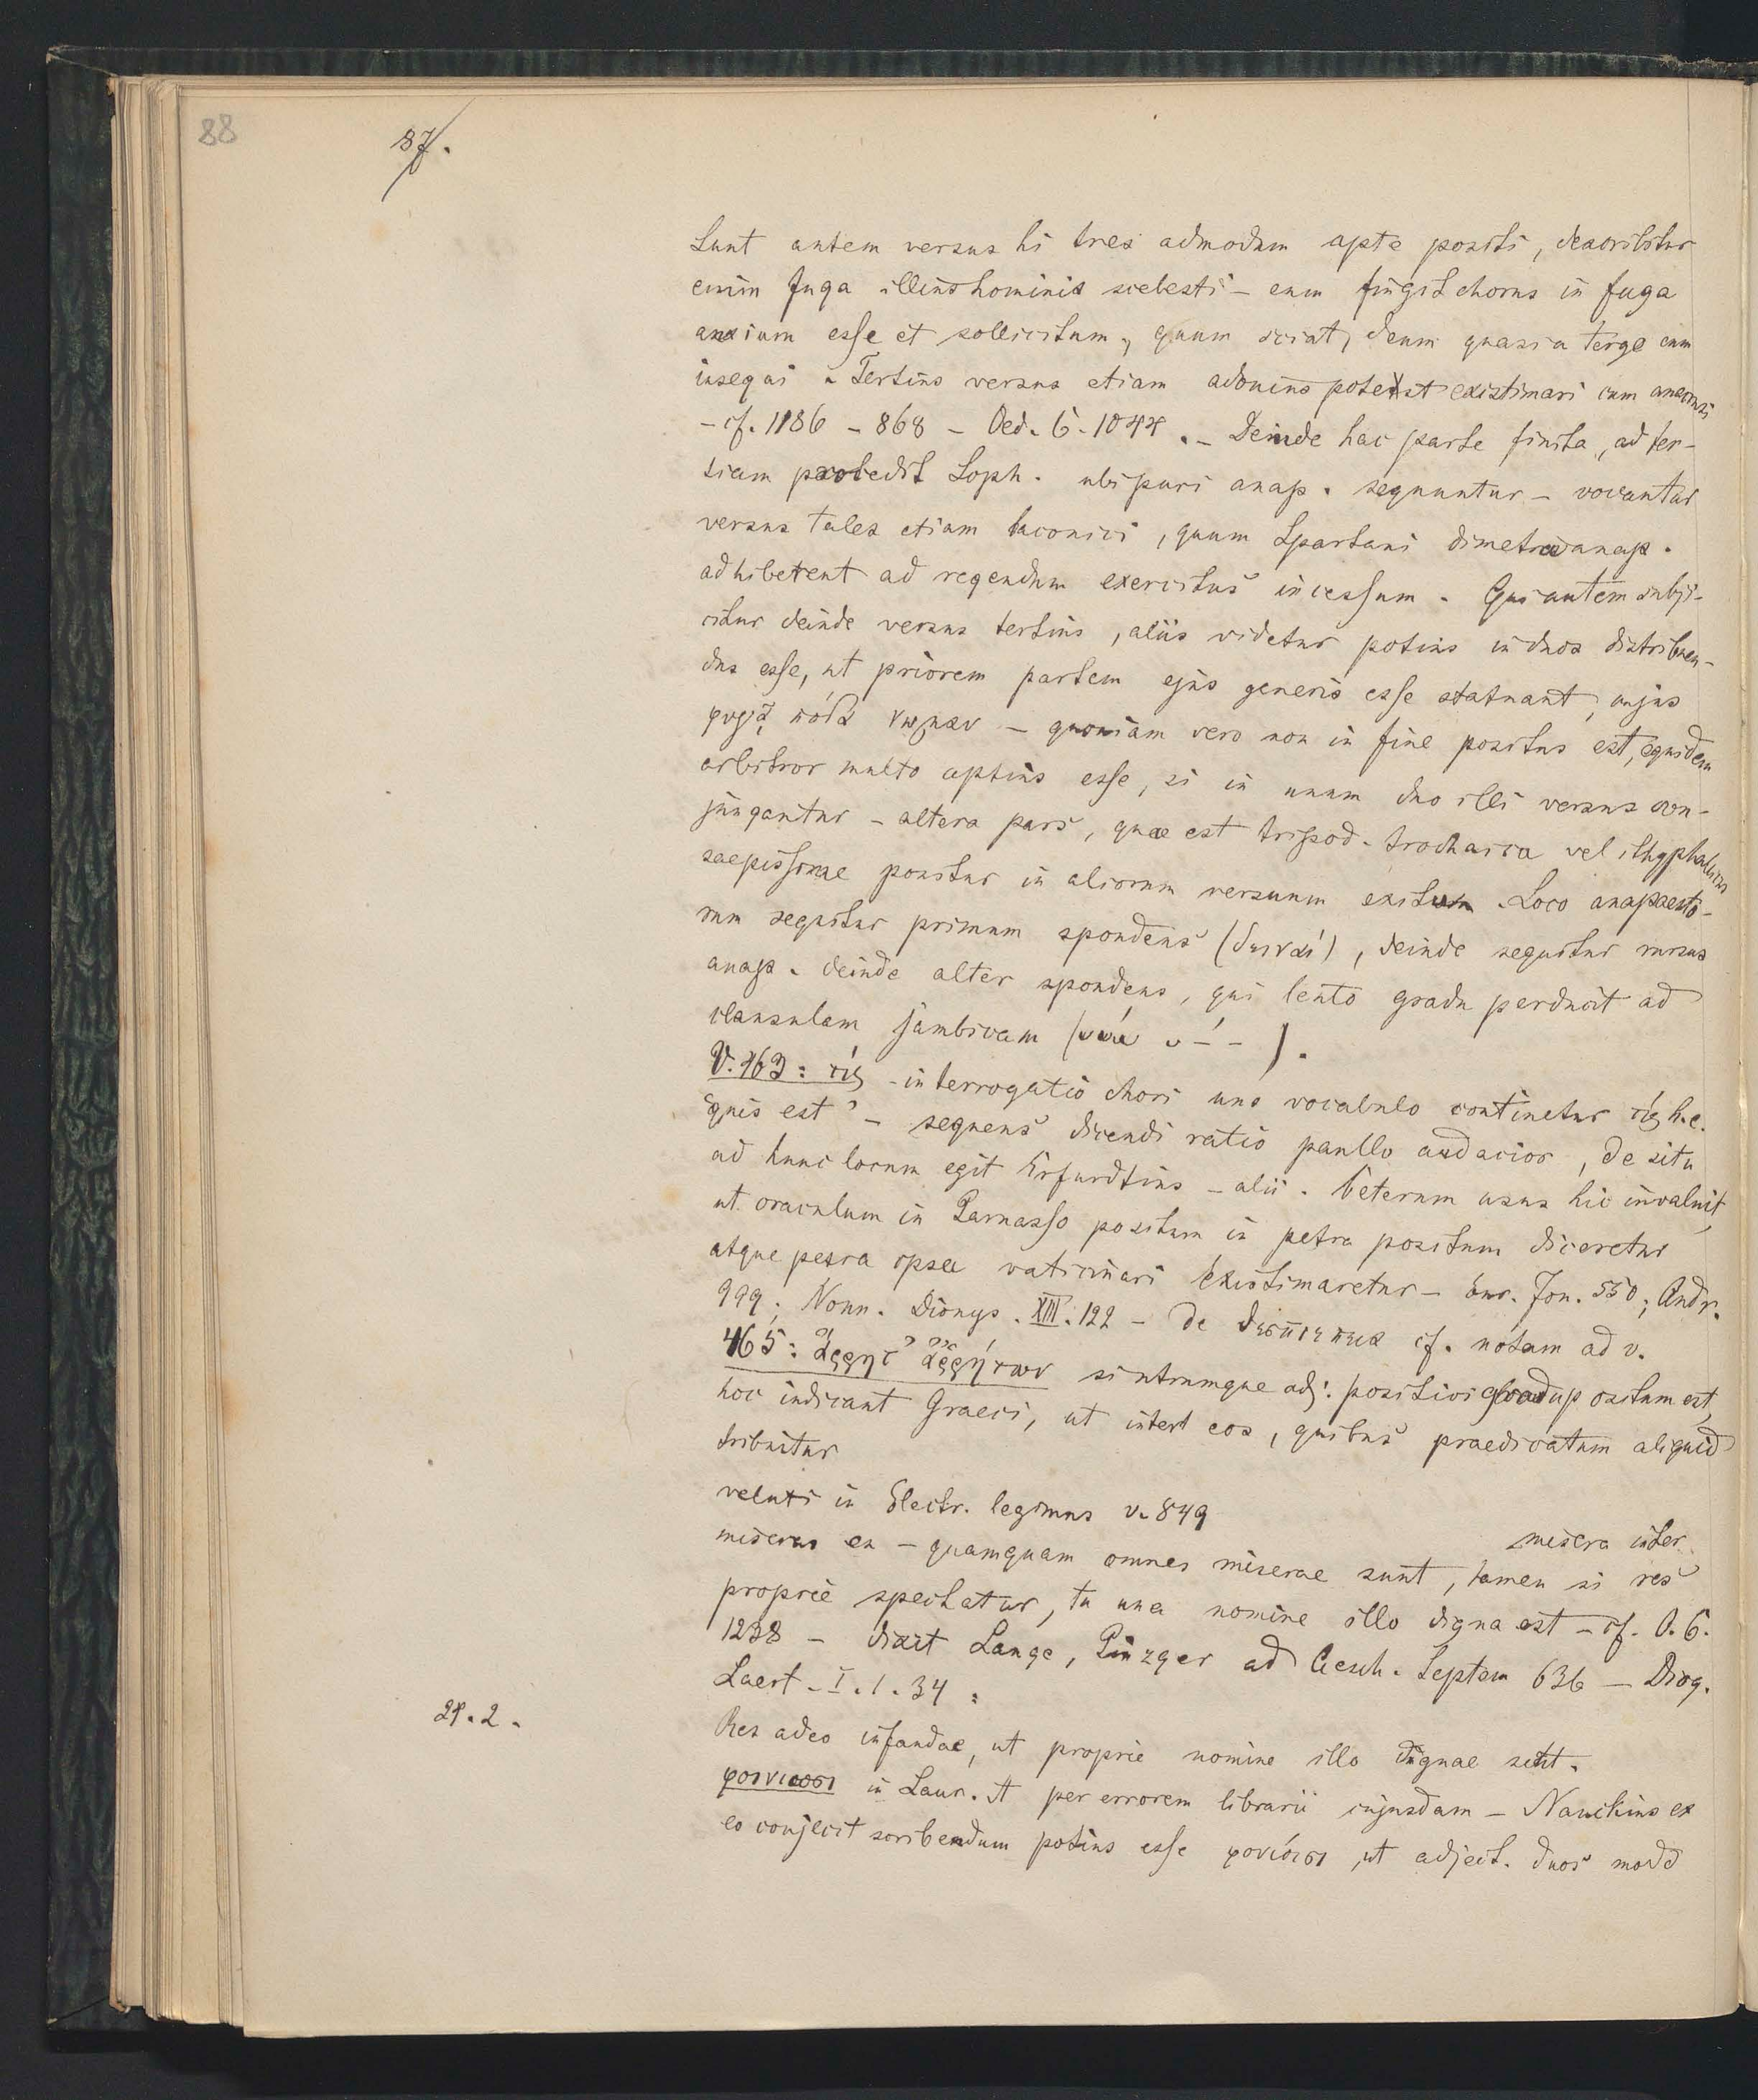 88
87.
Sunt autem versus hi tres admodum apte positi, describitur
enim fuga illius hominis scelesti – eum fingit chorus in fuga
anxium esse et sollicitum, quum sciat, deum quasi a tergo eum
insequi. Tertius versus etiam adonius potest existimari cum anacrusi
– cf. 1186 – 868 – Oed. C. 1044. – Deinde hac parte finita, ad ter-
tiam procedit Soph. ubi puri anap. sequuntur – vocantur
versus tales etiam laconici, quum Spartani dimetra anap.
adhiberent ad regendum exercitus incessum. Qui autem subji-
citur deinde versus tertius, aliis videtur potius in duos distribuen-
dus esse, ut priorem partem ejus generis esse statuant, cujus
φυγᾷ πόδα νωμᾶν – quoniam vero non in fine positus est, equidem
arbitror multo aptius esse, si in unum duo illi versus con-
jungantur – altera pars, quae est tripod. trochaica vel ithyphallicus
saepissime ponitur in aliorum versuum exitum. Loco anapaesto-
rum sequitur primum spondeus (δειναί), deinde sequitur rursus
anap. deinde alter spondeus, qui lento gradu perducit ad
clausulam jambicam
V. 463: τίς – interrogatio chori uno vocabulo continetur τίς h. e.
quis est? – sequens dicendi ratio paullo audacior, de situ
ad hunc locum egit Erfurdtius – alii. Veterum usus hic invaluit,
ut oraculum in Parnasso positum in petra positum diceretur
atque petra ipsa vaticinari existimaretur – Eur. Jon. 550; Andr.
999; Nonn. Dionys. XIII. 122 – De θεσπιέπεια cf. notam ad v.
465: ἄρρητ' ἀρρήτων si utrumque adj. positivi gradu positum est,
hoc indicant Graeci, ut inter eos, quibus praedicatum aliquid
tribuitur
veluti in Electr. legimus v. 849
misera inter
miseras es – quamquam omnes miserae sunt, tamen si res
proprie spectatur, tu una nomine illo digna est – cf. O. C.
1238 – dixit Lange, Pinzger ad Aesch. Septem 636 – Diog.
Laert. I. 1. 34:
29. 2.
Res adeo infandae, ut proprie nomine illo dignae sint.
φοινίαισι in Laur. A per errorem librarii cujusdam – Nauckius ex
eo conjecit scribendum potius esse φονίαισι, ut adject. duos modo